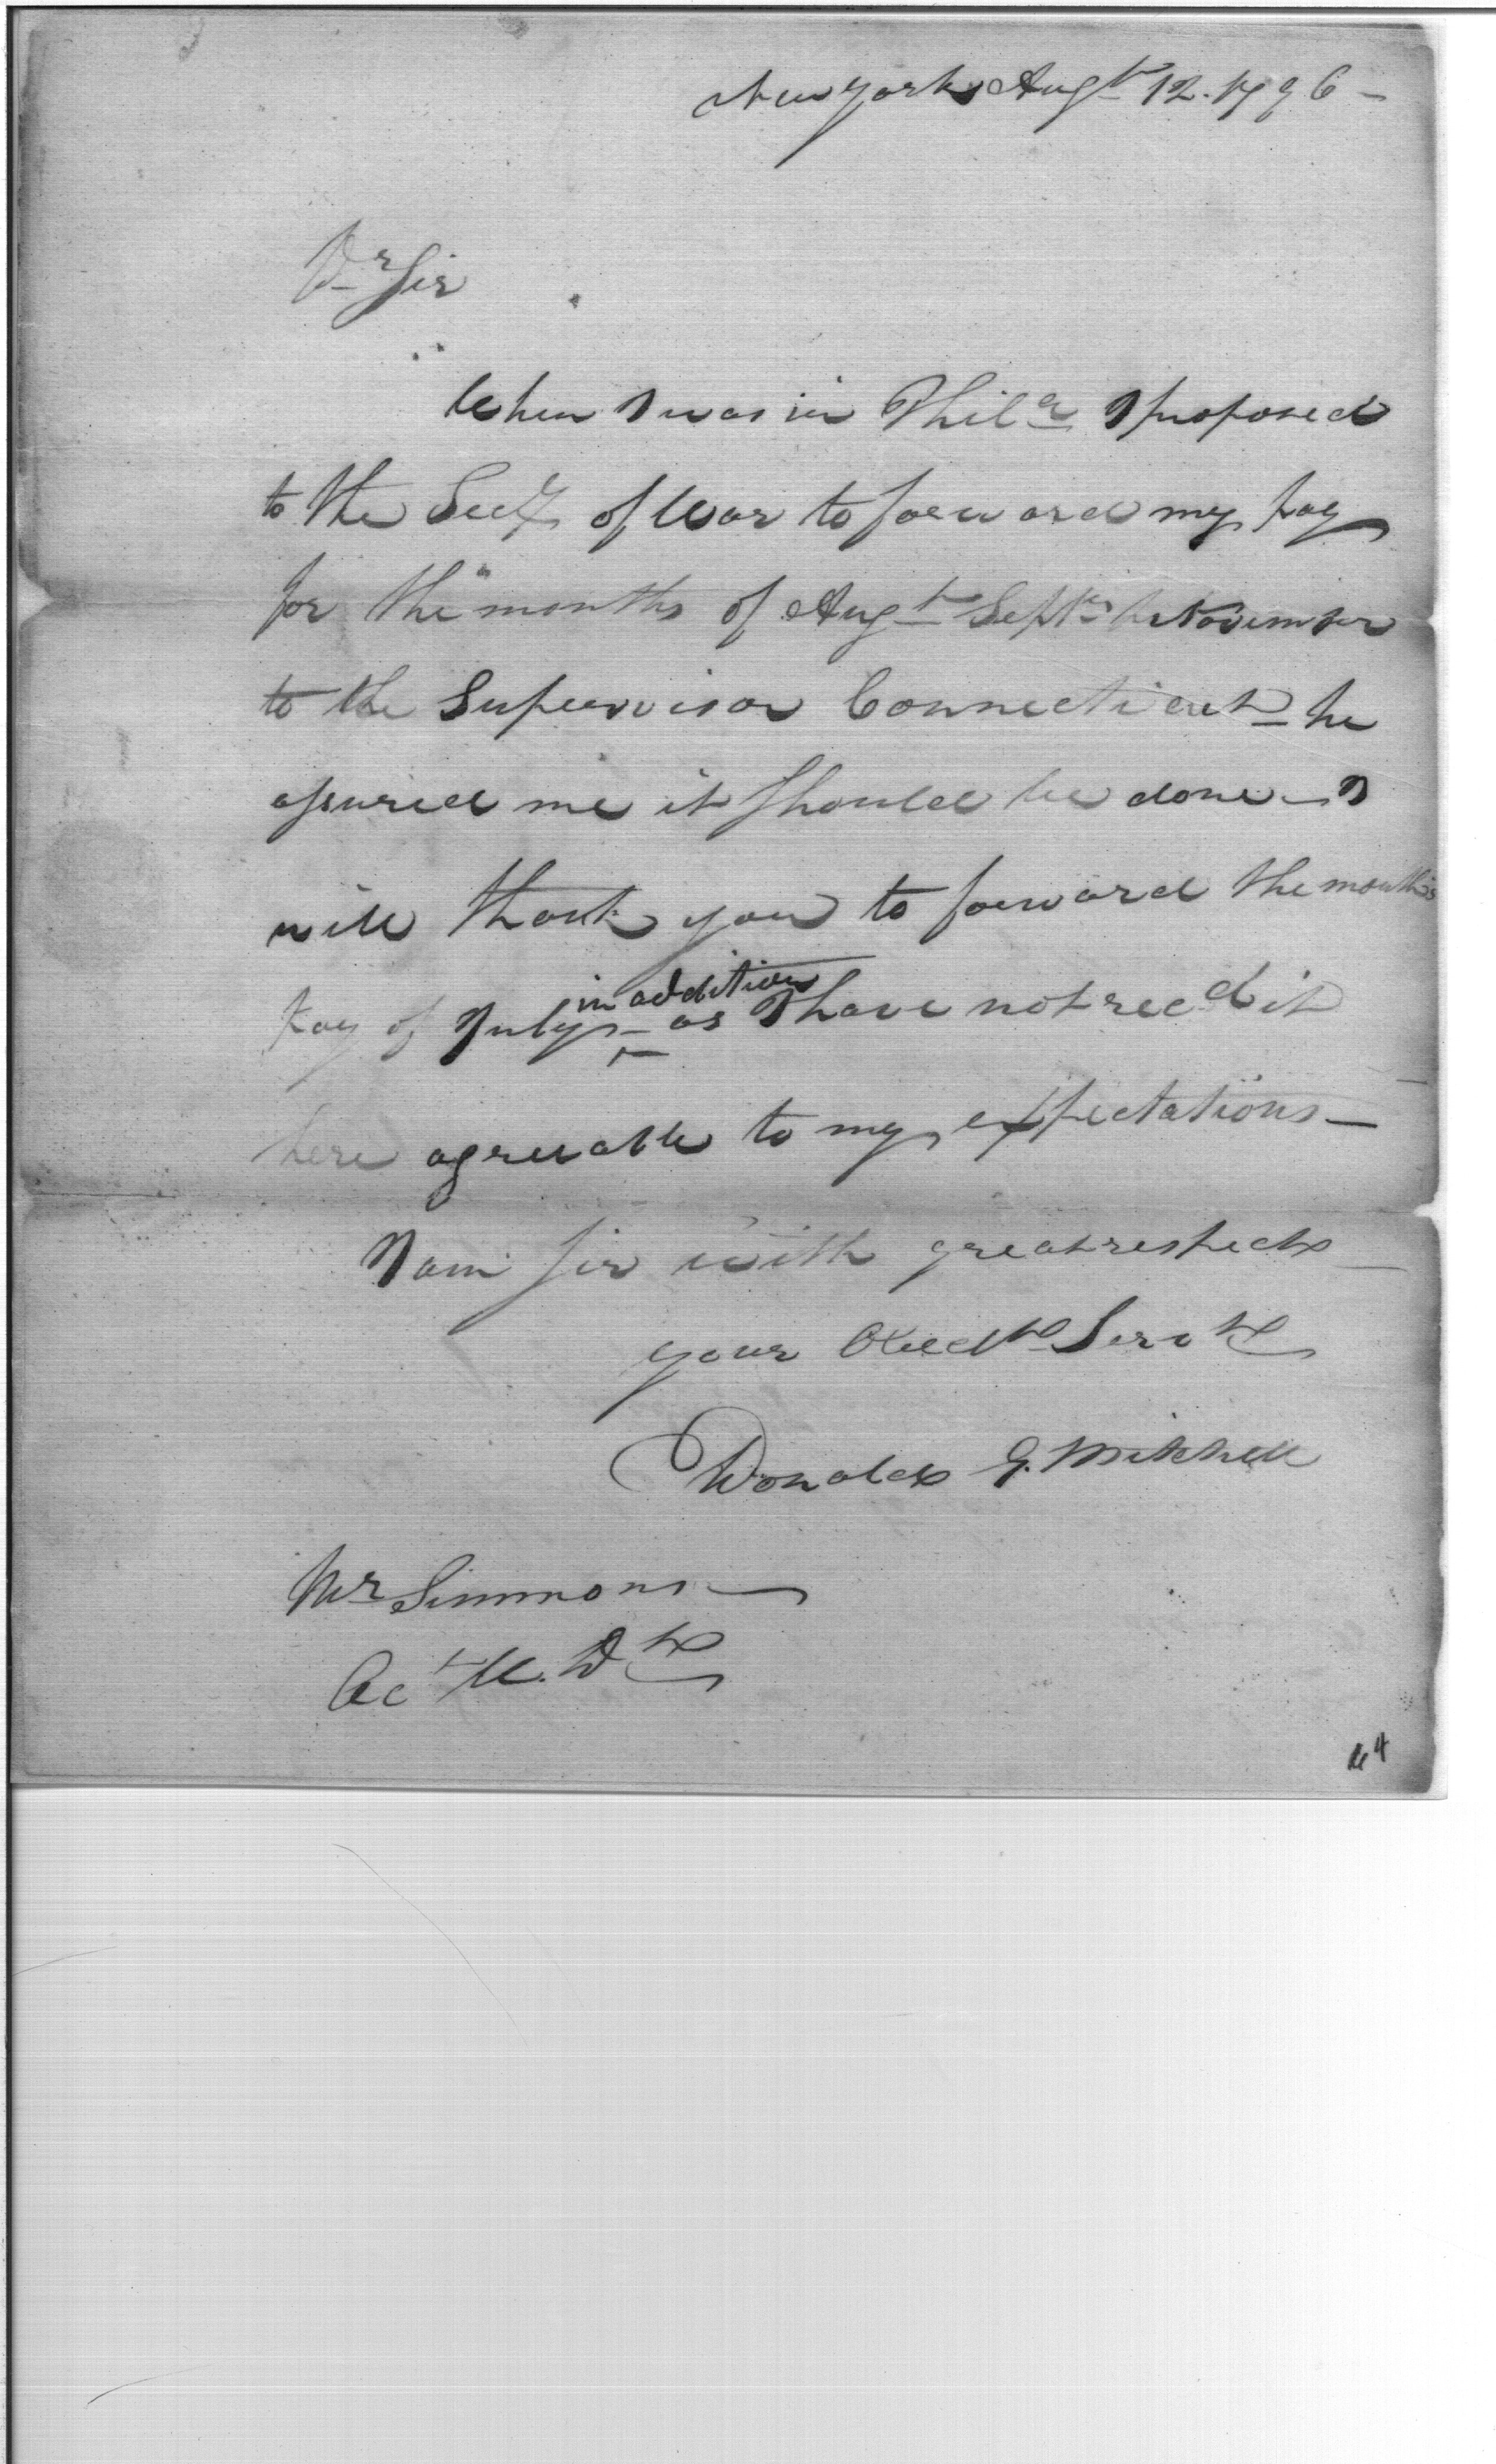 New York Augt 12. 1796 -
Dr Sir
When I was in Phila I proposed
to the Secy of War to forward my pay
for the months of Augt Septr & November
to the Supervisor Connecticut - he
assured me it should be done - I
will thank you to forward the month's
in addition
pay of July - as I have not recd it
here agreeable to my expectations -
I am Sir with great respect
your Obedt Servt
Donald G. Mitchell
Mr Simmons
Act W. Dt
64